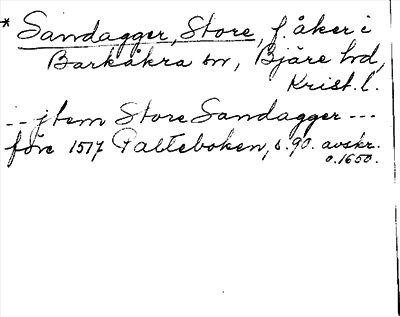 * Sandagger, Store, f. åker i
Barkåkra sn, Bjäre hd,
Krist. l.
-- jtem Store Sandagger ---
före 1517 Palteboken, s. 90. avskr.
o. 1650.